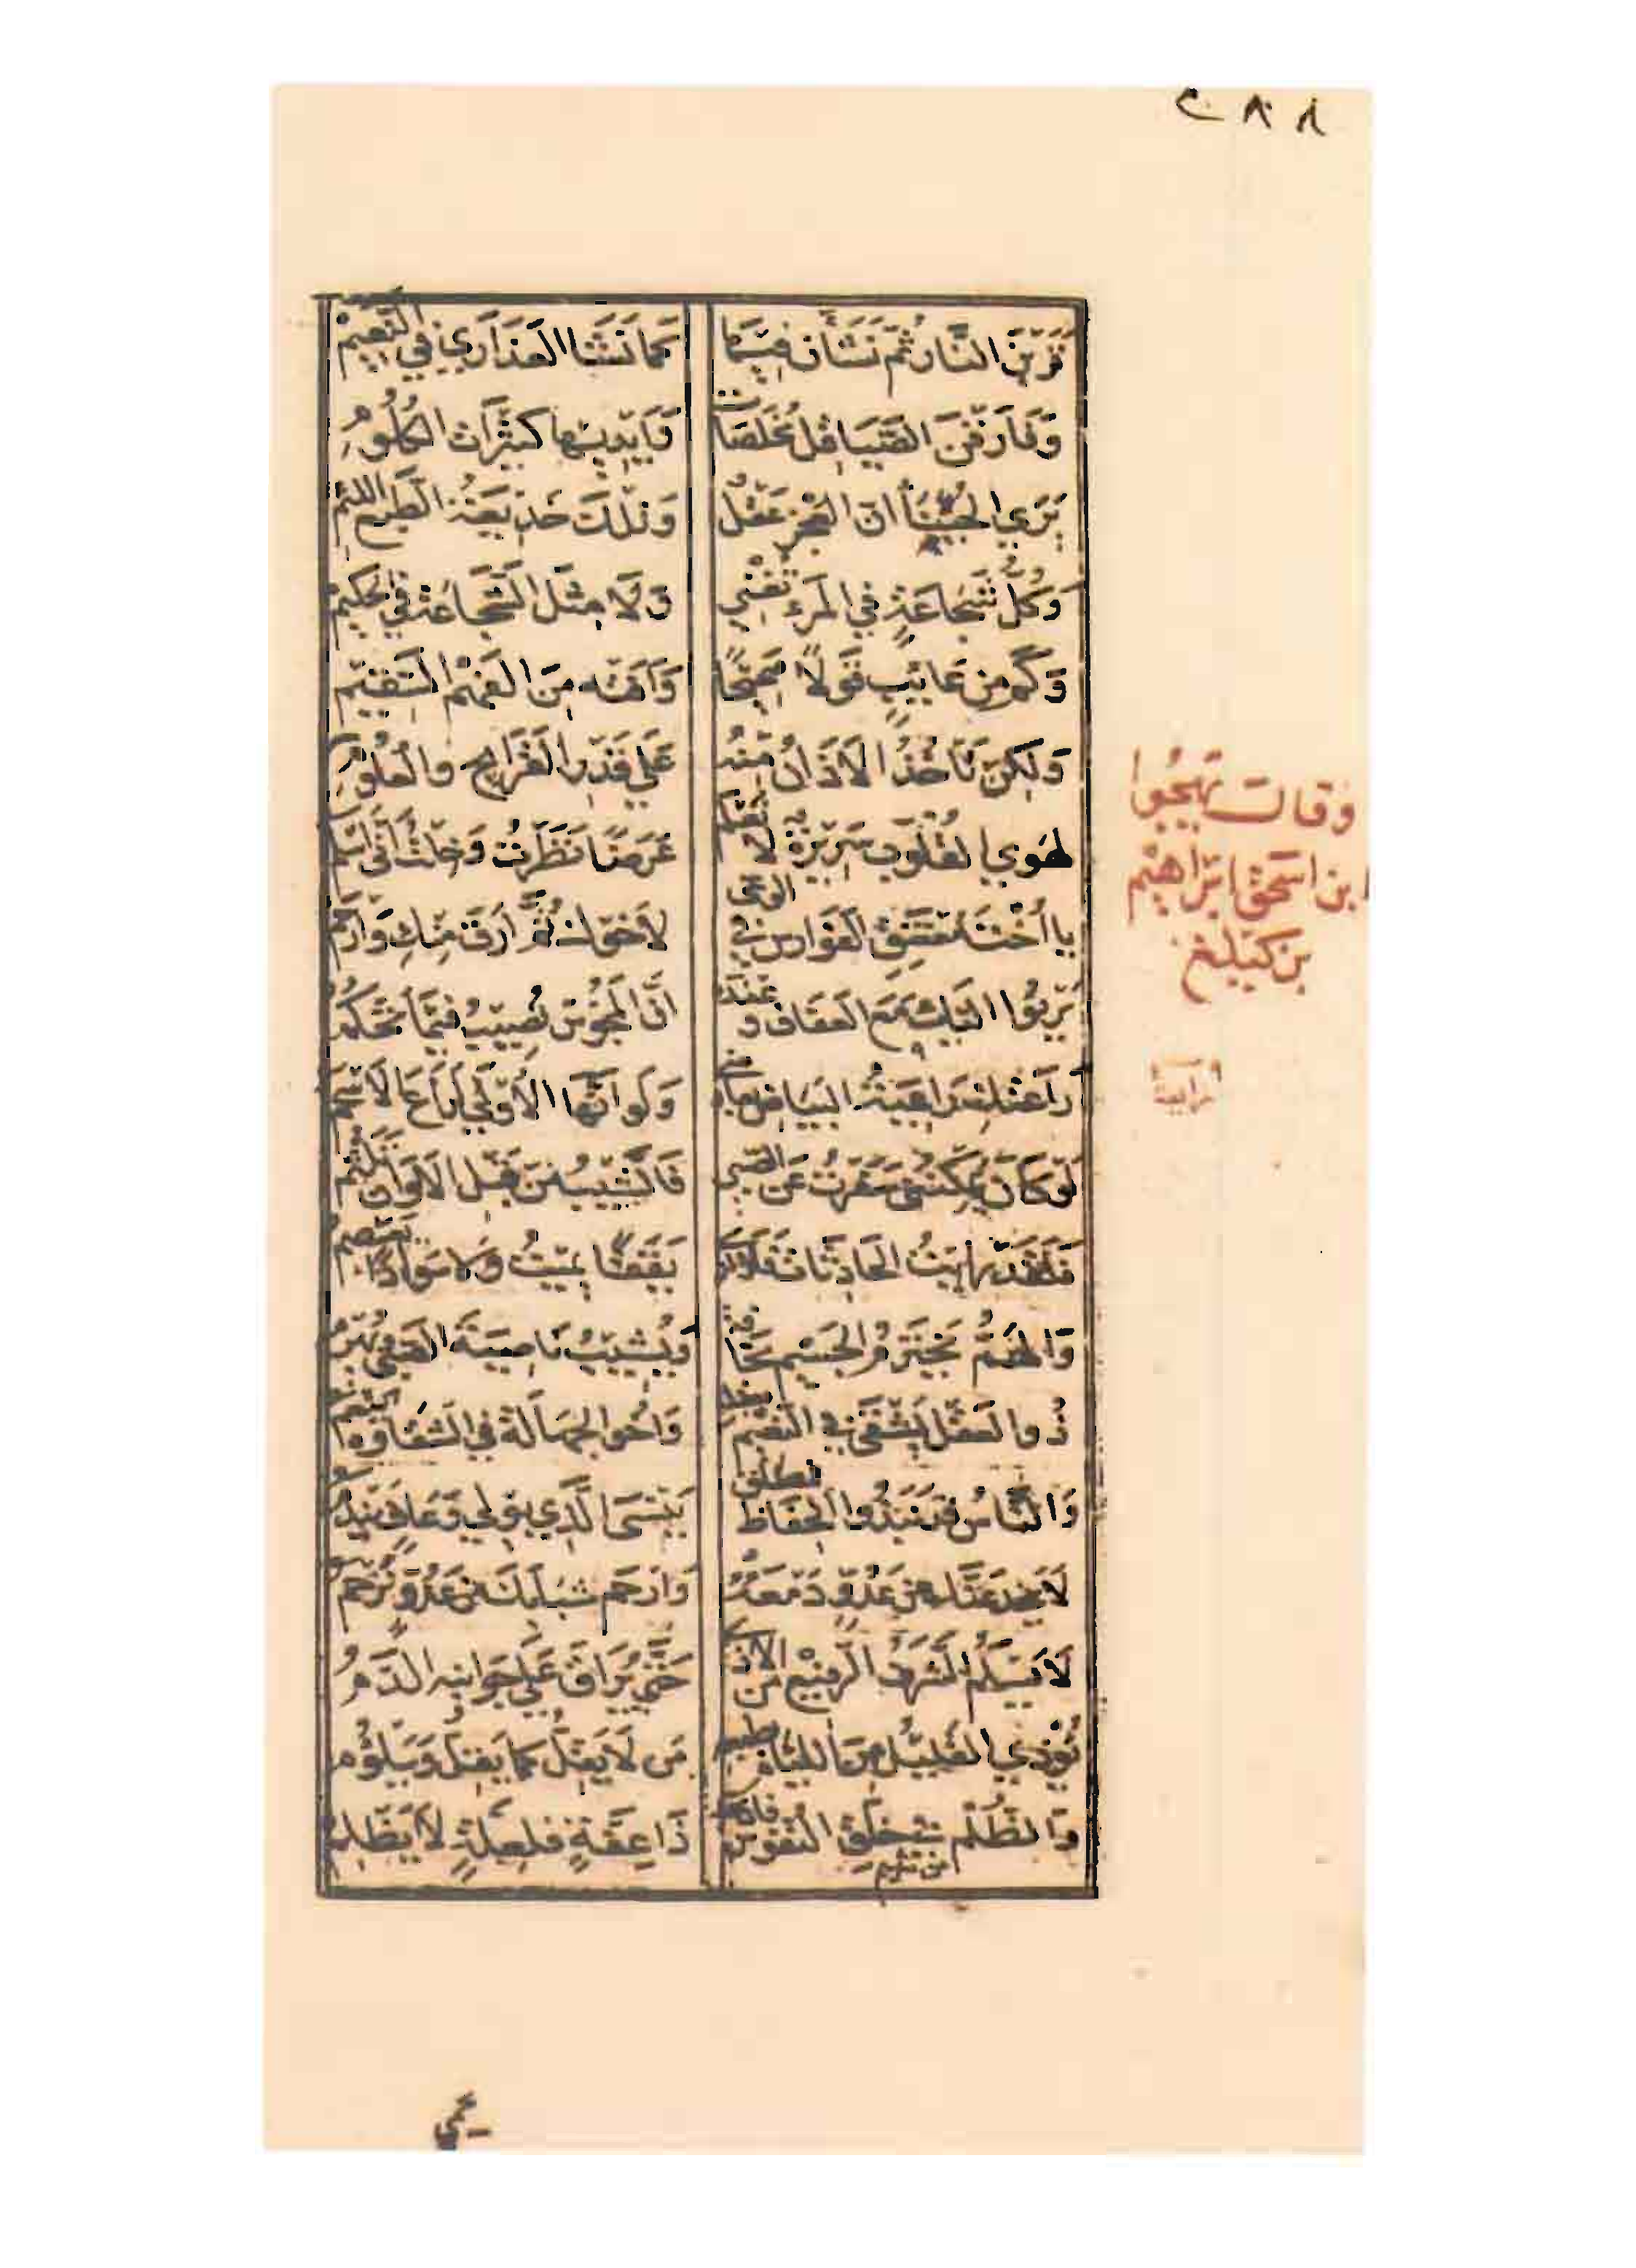 قَرَبْنَ النَّار ثُمَّ نَشَأن فِيها كَمَا نَشَا العَذَارِي فِي النَّعِيمْ
وَفَارَقْنَ الصَّيَاقِل مُخْلَصَات وَأيْدِيها كثيرَات الكلُومُ
يَرَي الجُبَنَا أنّ العَجْزَ عَقْلٌ وَتِلكَ خَدِيعَة الطبع اللئيم
وَكُلُّ شَجَاعَةٍ في المَرءِ تُغْنِي وَلَا مِثْلَ الشَّجَاعَة في الحَكِيمْ
وَكَم مِن عَائِبٍ قَوْلاً صَحِيحًا وَآفَتُه مِنَ الفَهْم السَّقِيمِ
وَلكِن تَأخُذُ الآذَانُ مِنْهُ عَلَي قَدْرِ القَرَايِحِ والعُلُومِ
وقال يهجوا
ابن اسحق ابرَاهيْم
بن كيغلغ
لهوي القُلُوبِ سَرِيرَةٌ لا تعلم عَرَضًا نَظَرْتُ وَخِلْتُ أنّي أسْلم
يا أُخْتَ مُعْتَنِقِ الفَوَارِسِ في الوغي لأخوك ثَمَّ أرَقّ مِنْكِ وَأرْحم
يَرْنُوا إليك مَعَ العَفَاف وعنده أنَّ المَجُوسَ تُصِيبُ فِيمَا تَحْكُمُ
رَاعَتْكِ رَاعِيَةُ البَيَاض بعارضي وَلَو أنّهَا الأُولَي لَرَاعَ الأسحم
رابعة
لَوْ كَانَ يُمكِنُنِي سَفَرْتُ عَن الصبي فَالشَّيْبُ مِن قَبْلِ الأوَانِ تَلَثُّم
وَلَقَدْ رَأيْتُ الحَادِثَات فَلَا أرَي يَقَقًا يُمِيتُ وَلا سَوَادًا يعصم
وَالهَمُّ يَخْتَرِمُ الجَسِيْم نَحَافة وَيُشِيْبُ نَاصِيَةَ الصَّبي ويهرم
ذُو العَقْل يَشْقَي في النَّعِيْم بعقله وَأخُو الجهَالَة في الشّقَاوَة ينعم
وَالنَّاسُ قَد نَبَذُوا الحِفَاظ فمطلق يَنْسَي الَّذِي يُولي وَعَافٍ يَنْدم
لَا يَخدَعَنَّك مِن عَدُوٍّ دَمْعُهُ وَارْحَم شَبَابَكَ مِن عَدُوٍّ تُرْحَم
لَا يَسْلَمُ الشَّرَفُ الرَّفِيْع مِن الأذي حَتّي يُرَاقَ عَلَي جَوَانِبِه الدَّمُ
يُؤْذِي القَلِيْل مِنَ اللِّئَام بطبعه مَن لَا يَقِلُّ كما يَقِلّ وَيَلؤُم
وَالظُّلْم مِن خُلُقِ النُّفُوس فان تجد ذَا عِفَّةٍ فَلِعِلَّةٍ لَا يَظْلِمُ
من شيم